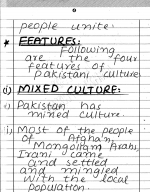 people unite.
* FEATURES:
Following
are the four
features of
pakistani culture
(i) MIXED CULTURE:
i) Pakistan has
mixed culture.
ii) Most of the people
of Afghan,
Mongolian, Arabs,
Irani came
and settled
and mingled
with the local
population.